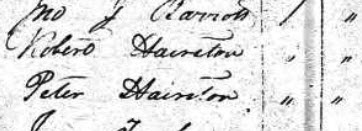 Jno J Barrott 1 "
Robert Hairston " "
Peter Hairston " "